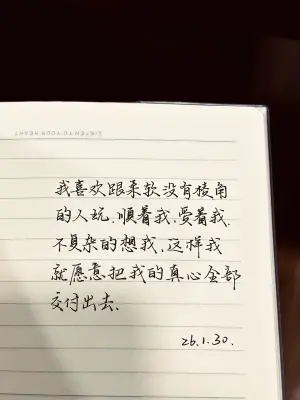 LISTEN TO YOUR HEART
我喜欢跟柔软没有棱角
的人玩.顺着我.爱着我.
不复杂的想我,这样我
就愿意把我的真心全部
交付出去.
26.1.30.